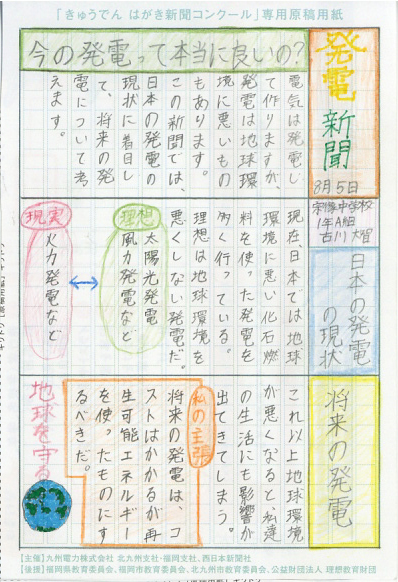 「きゅうでん はがき新聞コンクール」専用原稿用紙
発電新聞
8月5日
宗像中学校
1年A組
古川 大智
今の発電って本当に良いの？
電気は発電し
て作りますが、
発電は地球環
境に悪いもの
もあります。
この新聞では、
日本の発電の
現状に着目し
て、将来の発
電について考
えます。
日本の発電
の現状
現在、日本では地球
環境に悪い化石燃
料を使った発電を
多く行っている。
理想は地球環境を
悪くしない発電だ。
理想
太陽光発電
風力発電など
現実
火力発電など
将来の発電
これ以上地球環境
が悪くなると、私達
の生活にも影響が
出てきてしまう。
私の主張
将来の発電は、コ
ストはかかるが再
生可能エネルギー
を使ったものにす
るべきだ。
地球を守る
【主催】九州電力株式会社 北九州支社・福岡支社、西日本新聞社
【後援】福岡県教育委員会、福岡市教育委員会、北九州市教育委員会、公益財団法人 理想教育財団